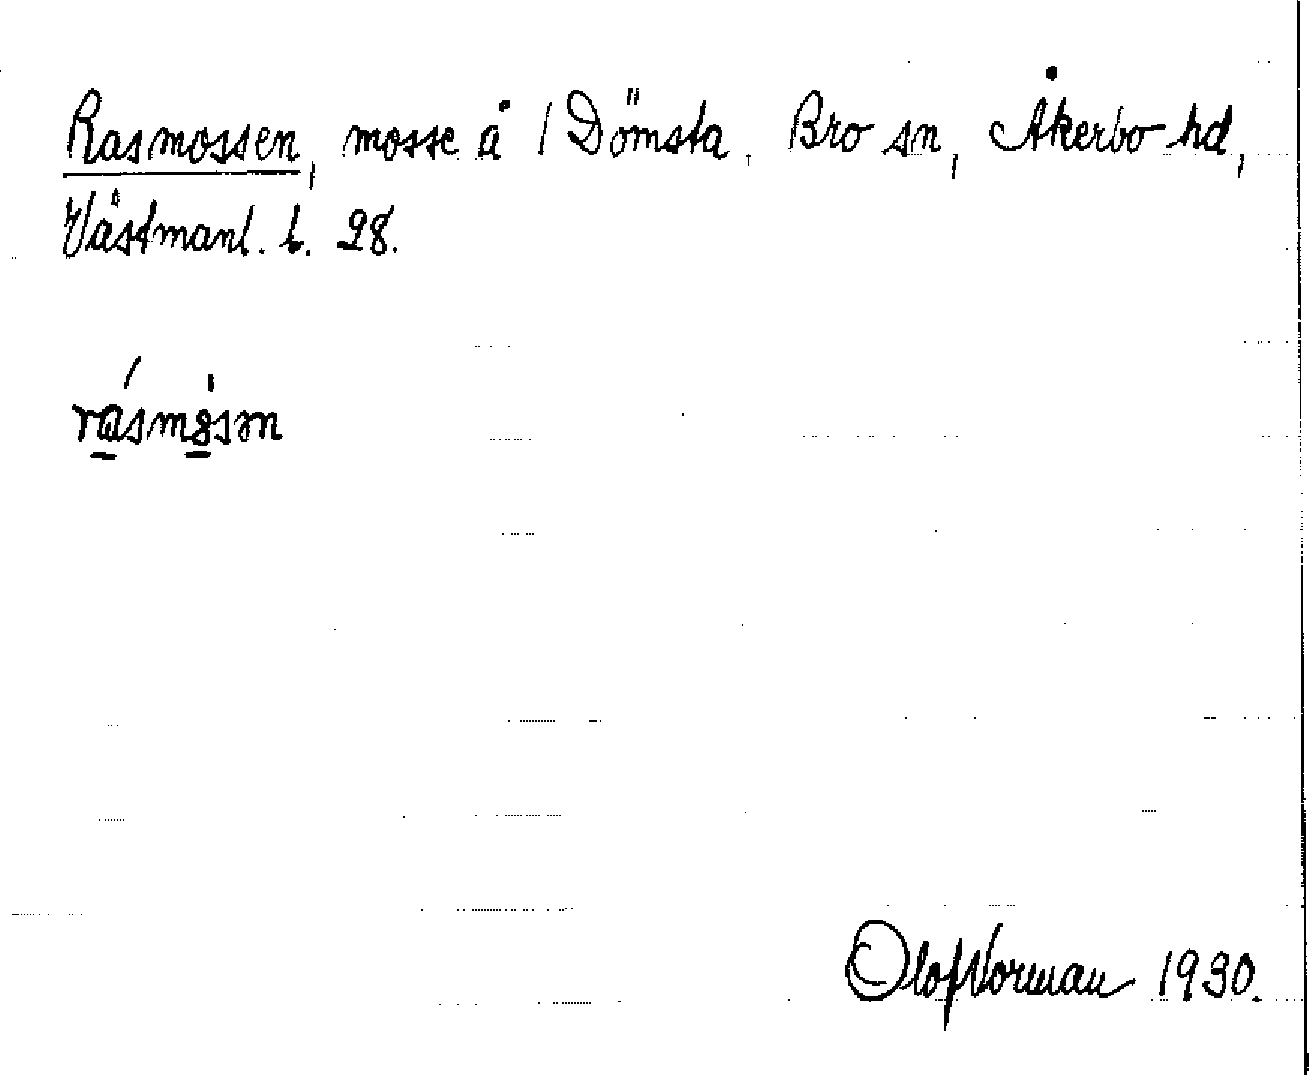 Rasmossen, mosse å / Dömsta, Bro sn, Åkerbo hd,
Västmanl. l. 28.
rásmòsən
Olof Norman 1930.